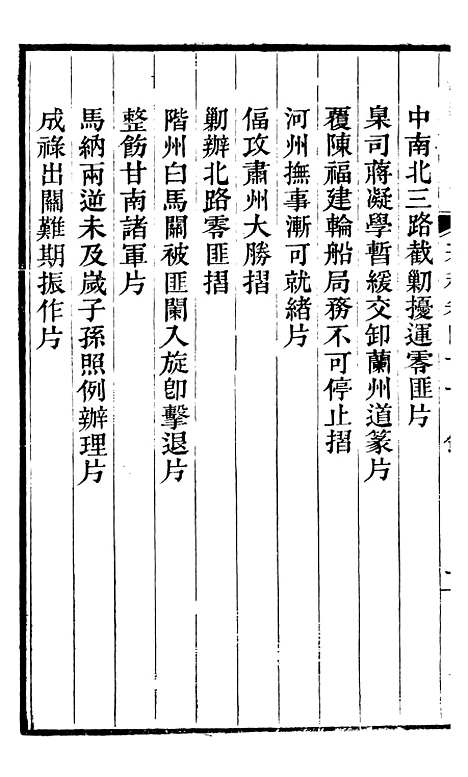 中南北三路截勦擾運零匪片
臬司蔣凝學暫緩交卸蘭州道篆片
覆陳福建輪船局務不可停止摺
河州撫事漸可就緒片
偪攻肅州大勝摺
勦辦北路零匪摺
階州白馬關被匪闌入旋卽擊退片
整飭甘南諸軍片
馬納兩逆未及歲子孫照例辦理片
成祿出關難期振作片